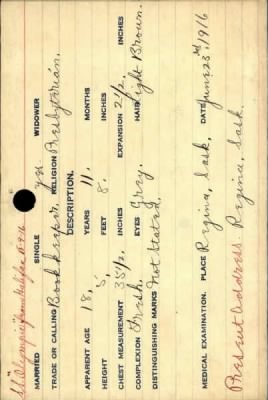 S.S. "Olympic" from Halifax 18-9-16
MARRIED SINGLE Yes. WIDOWER
TRADE OR CALLING Bookkeeper. RELIGION Presbyterian.
DESCRIPTION.
APPARENT AGE 18, YEARS 11, MONTHS
HEIGHT 5, FEET 8, INCHES
CHEST MEASUREMENT 35½, INCHES EXPANSION 2½, INCHES
COMPLEXION Fresh. EYES Gray. HAIR Light Brown.
DISTINGUISHING MARKS Not Stated.
MEDICAL EXAMINATION. PLACE Regina, Sask. DATE June 23rd, 1916
Present Address. Regina, Sask.